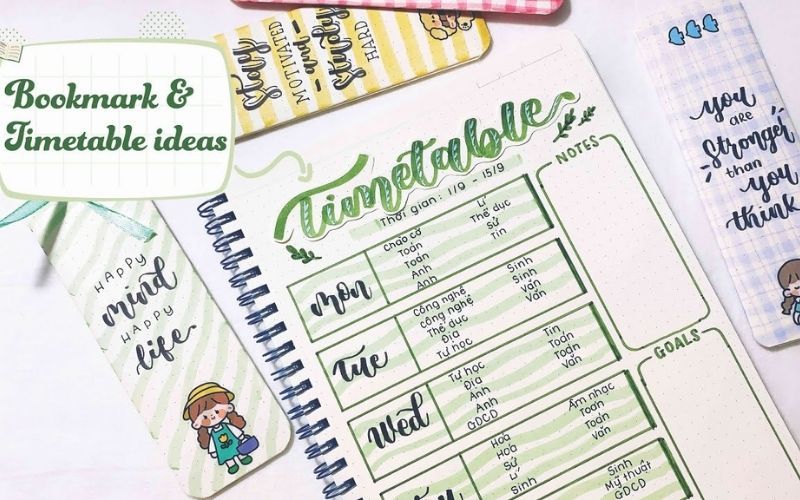 Bookmark &
Timetable ideas
Stay
MOTIVATED
and
Study
HARD
Timetable
Thời gian: 1/9 - 15/9
NOTES
mon
Chào cờ
Toán
Toán
Anh
Anh
Lí
Thể dục
Sử
Tin
Tue
Công nghệ
Công nghệ
Thể dục
Địa
Tự học
Sinh
Sinh
Văn
Wed
Tự học
Địa
Anh
Anh
GDCD
Tin
Toán
Văn
GOALS
Hóa
Hóa
Sử
Lí
Sinh
Âm nhạc
Toán
Toán
Văn
Sinh
Mỹ thuật
GDCD
HAPPY
mind
HAPPY
life
you
are
Stronger
than
you
think